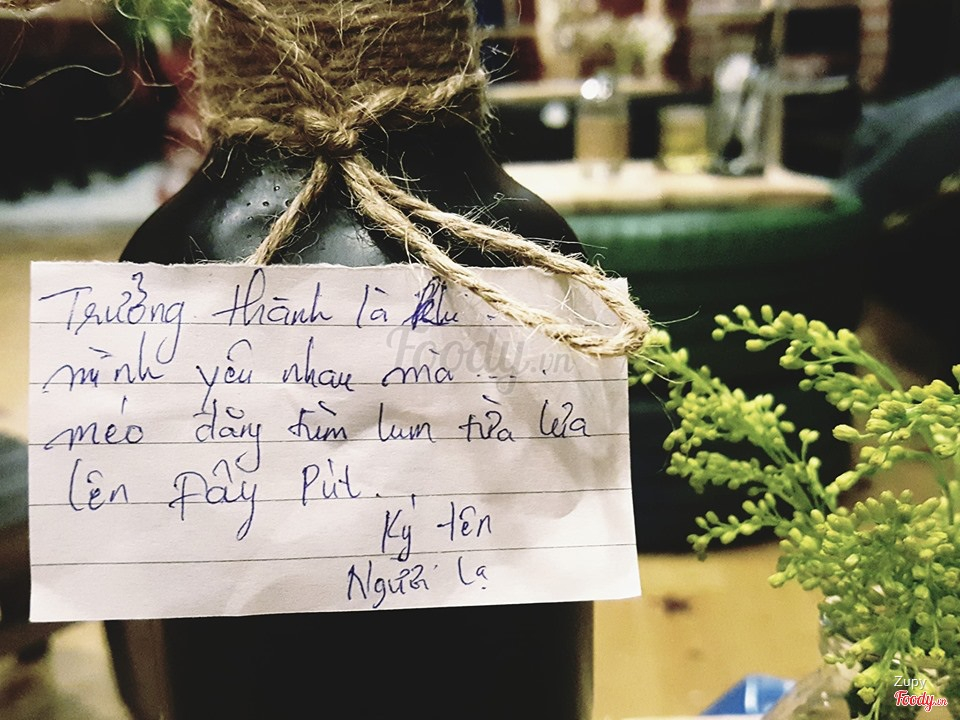 Trưởng thành là khi
mình yêu nhau mà ...
méo đăng tùm lum từa lưa
lên Đây Pút..
Ký tên
Người lạ
Foody.vn
Zupy
Foody.vn